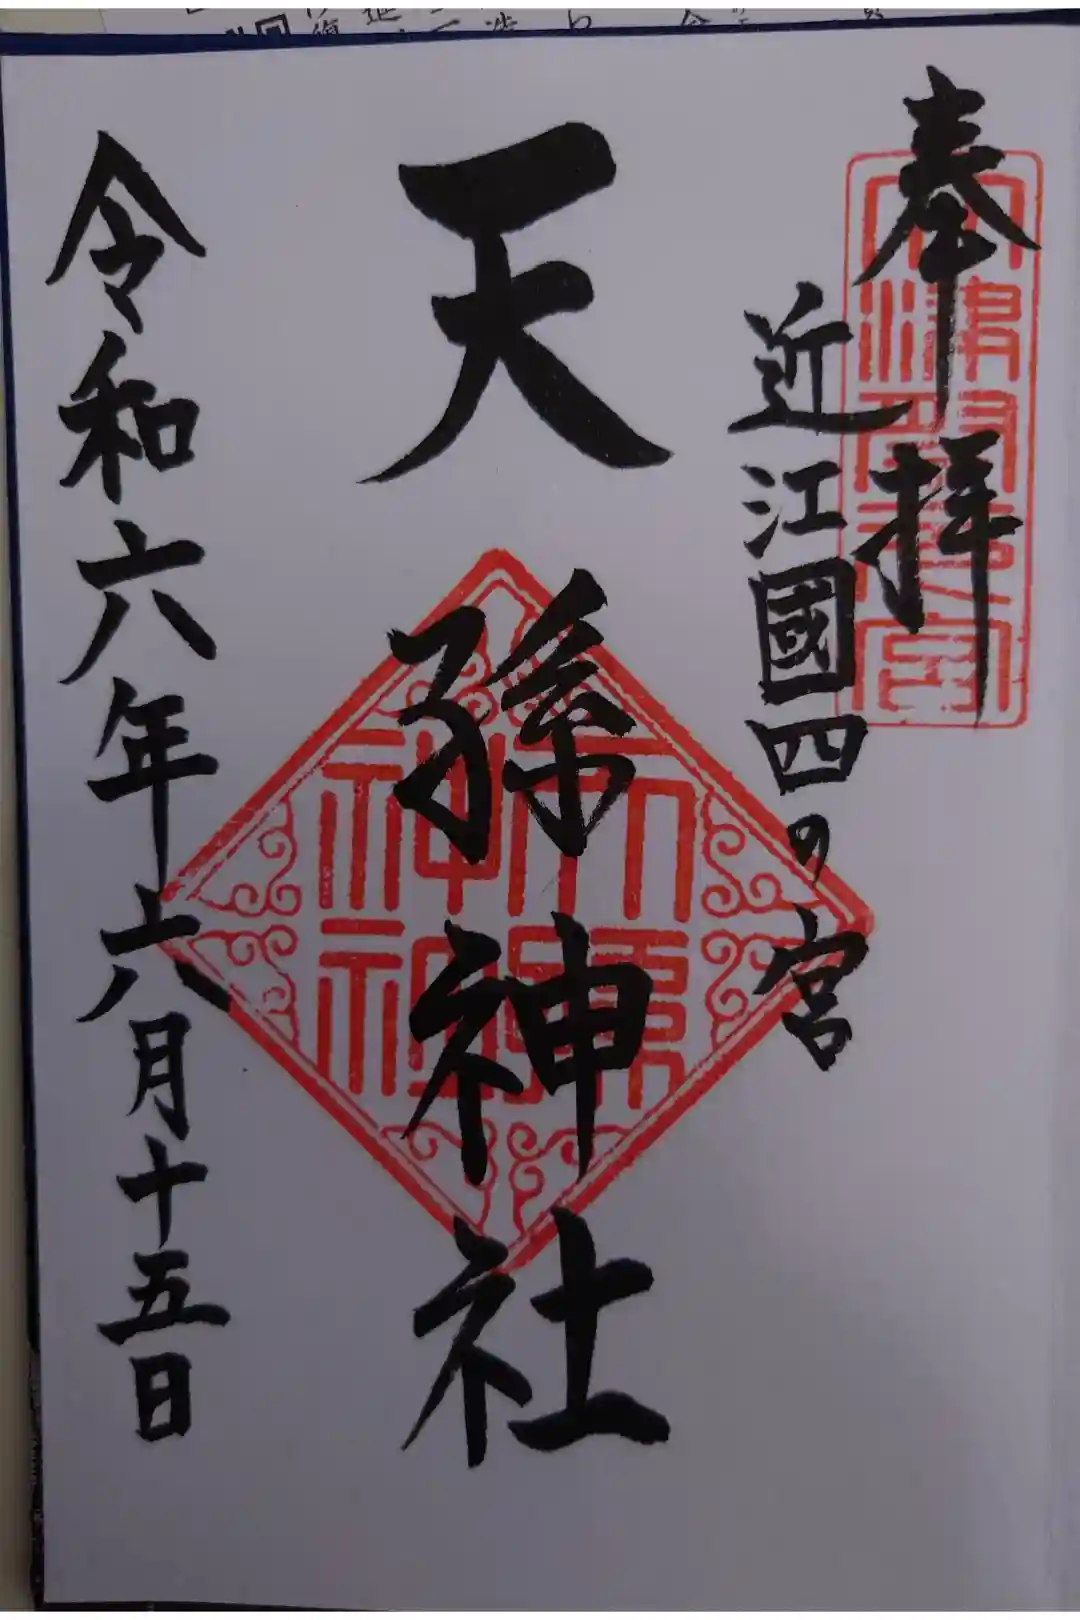 奉拝
近江國四の宮
天孫神社
令和六年六月十五日
天孫神社